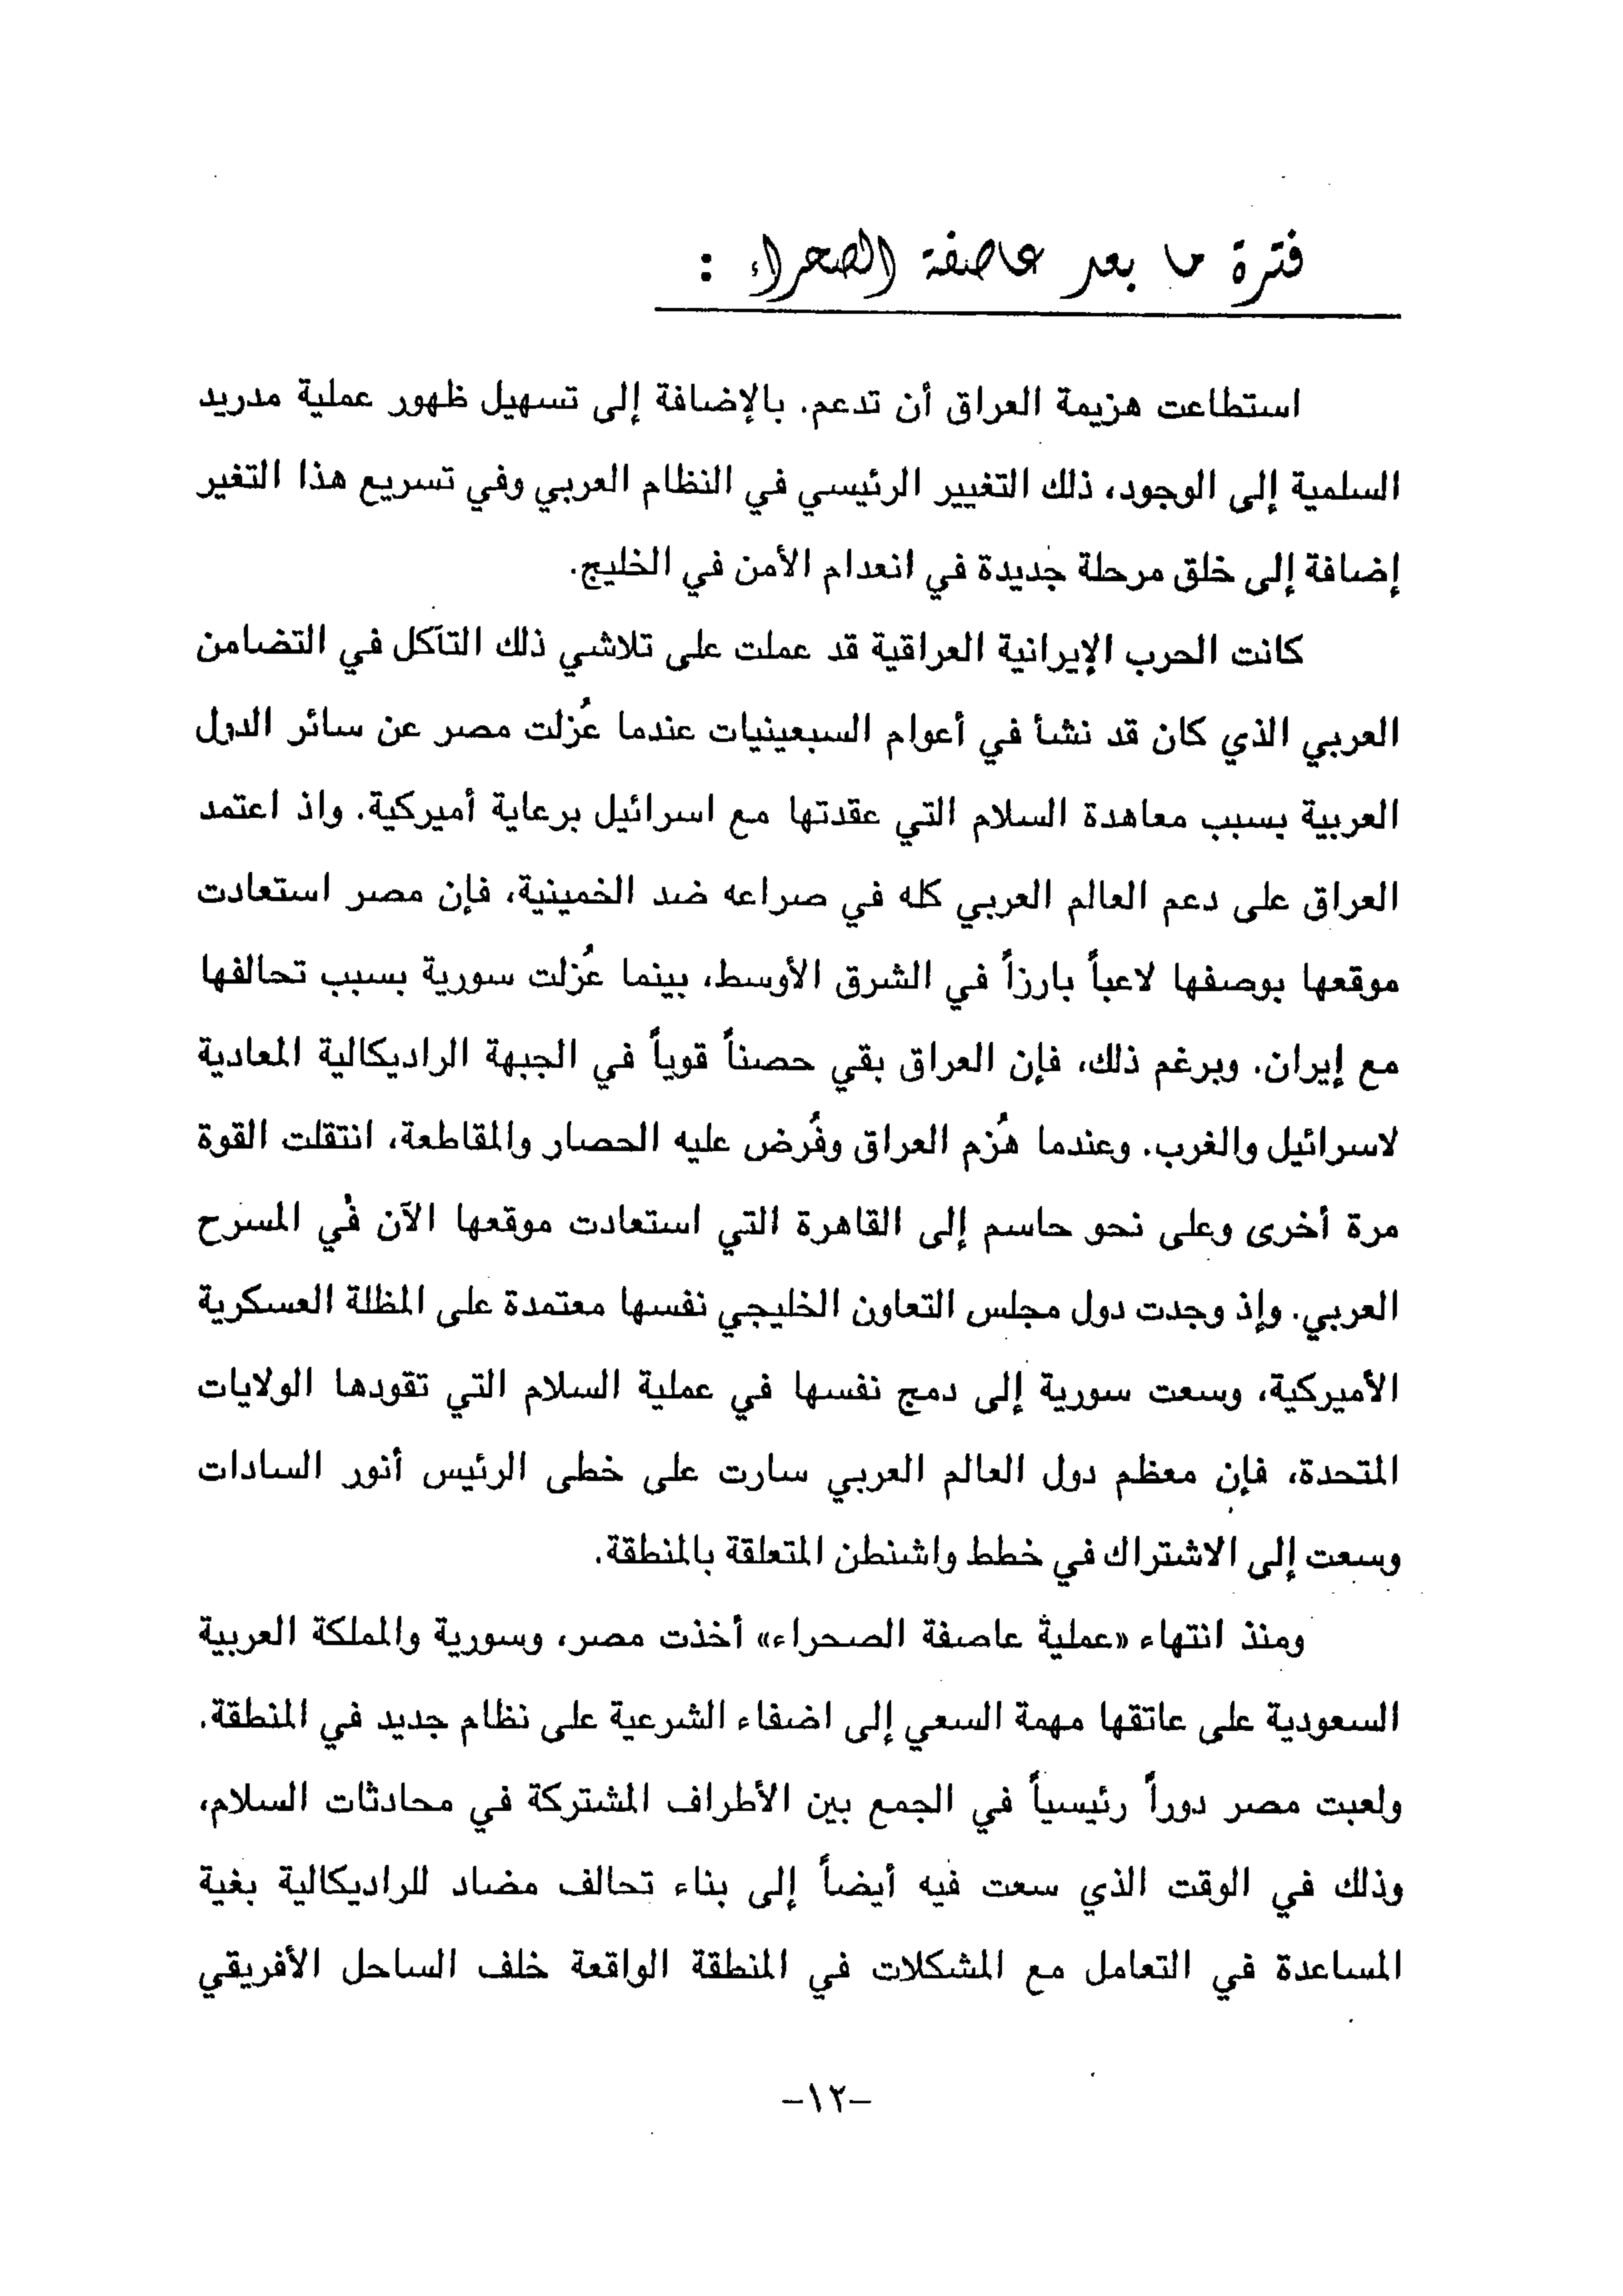 فترة ما بعد عاصفة الصحراء :
استطاعت هزيمة العراق أن تدعم. بالإضافة إلى تسهيل ظهور عملية مدريد
السلمية إلى الوجود، ذلك التغيير الرئيسي في النظام العربي وفي تسريع هذا التغير
إضافة إلى خلق مرحلة جديدة في انعدام الأمن في الخليج.
كانت الحرب الإيرانية العراقية قد عملت على تلاشي ذلك التآكل في التضامن
العربي الذي كان قد نشأ في أعوام السبعينيات عندما عُزلت مصر عن سائر الدول
العربية بسبب معاهدة السلام التي عقدتها مع اسرائيل برعاية أميركية. واذ اعتمد
العراق على دعم العالم العربي كله في صراعه ضد الخمينية، فإن مصر استعادت
موقعها بوصفها لاعباً بارزاً في الشرق الأوسط، بينما عُزلت سورية بسبب تحالفها
مع إيران. وبرغم ذلك، فإن العراق بقي حصناً قوياً في الجبهة الراديكالية المعادية
لاسرائيل والغرب. وعندما هُزم العراق وفُرض عليه الحصار والمقاطعة، انتقلت القوة
مرة أخرى وعلى نحو حاسم إلى القاهرة التي استعادت موقعها الآن في المسرح
العربي. وإذ وجدت دول مجلس التعاون الخليجي نفسها معتمدة على المظلة العسكرية
الأميركية، وسعت سورية إلى دمج نفسها في عملية السلام التي تقودها الولايات
المتحدة، فإن معظم دول العالم العربي سارت على خطى الرئيس أنور السادات
وسعت إلى الاشتراك في خطط واشنطن المتعلقة بالمنطقة.
ومنذ انتهاء «عملية عاصفة الصحراء» أخذت مصر، وسورية والمملكة العربية
السعودية على عاتقها مهمة السعي إلى اضفاء الشرعية على نظام جديد في المنطقة.
ولعبت مصر دوراً رئيسياً في الجمع بين الأطراف المشتركة في محادثات السلام،
وذلك في الوقت الذي سعت فيه أيضاً إلى بناء تحالف مضاد للراديكالية بغية
المساعدة في التعامل مع المشكلات في المنطقة الواقعة خلف الساحل الأفريقي
-١٢-